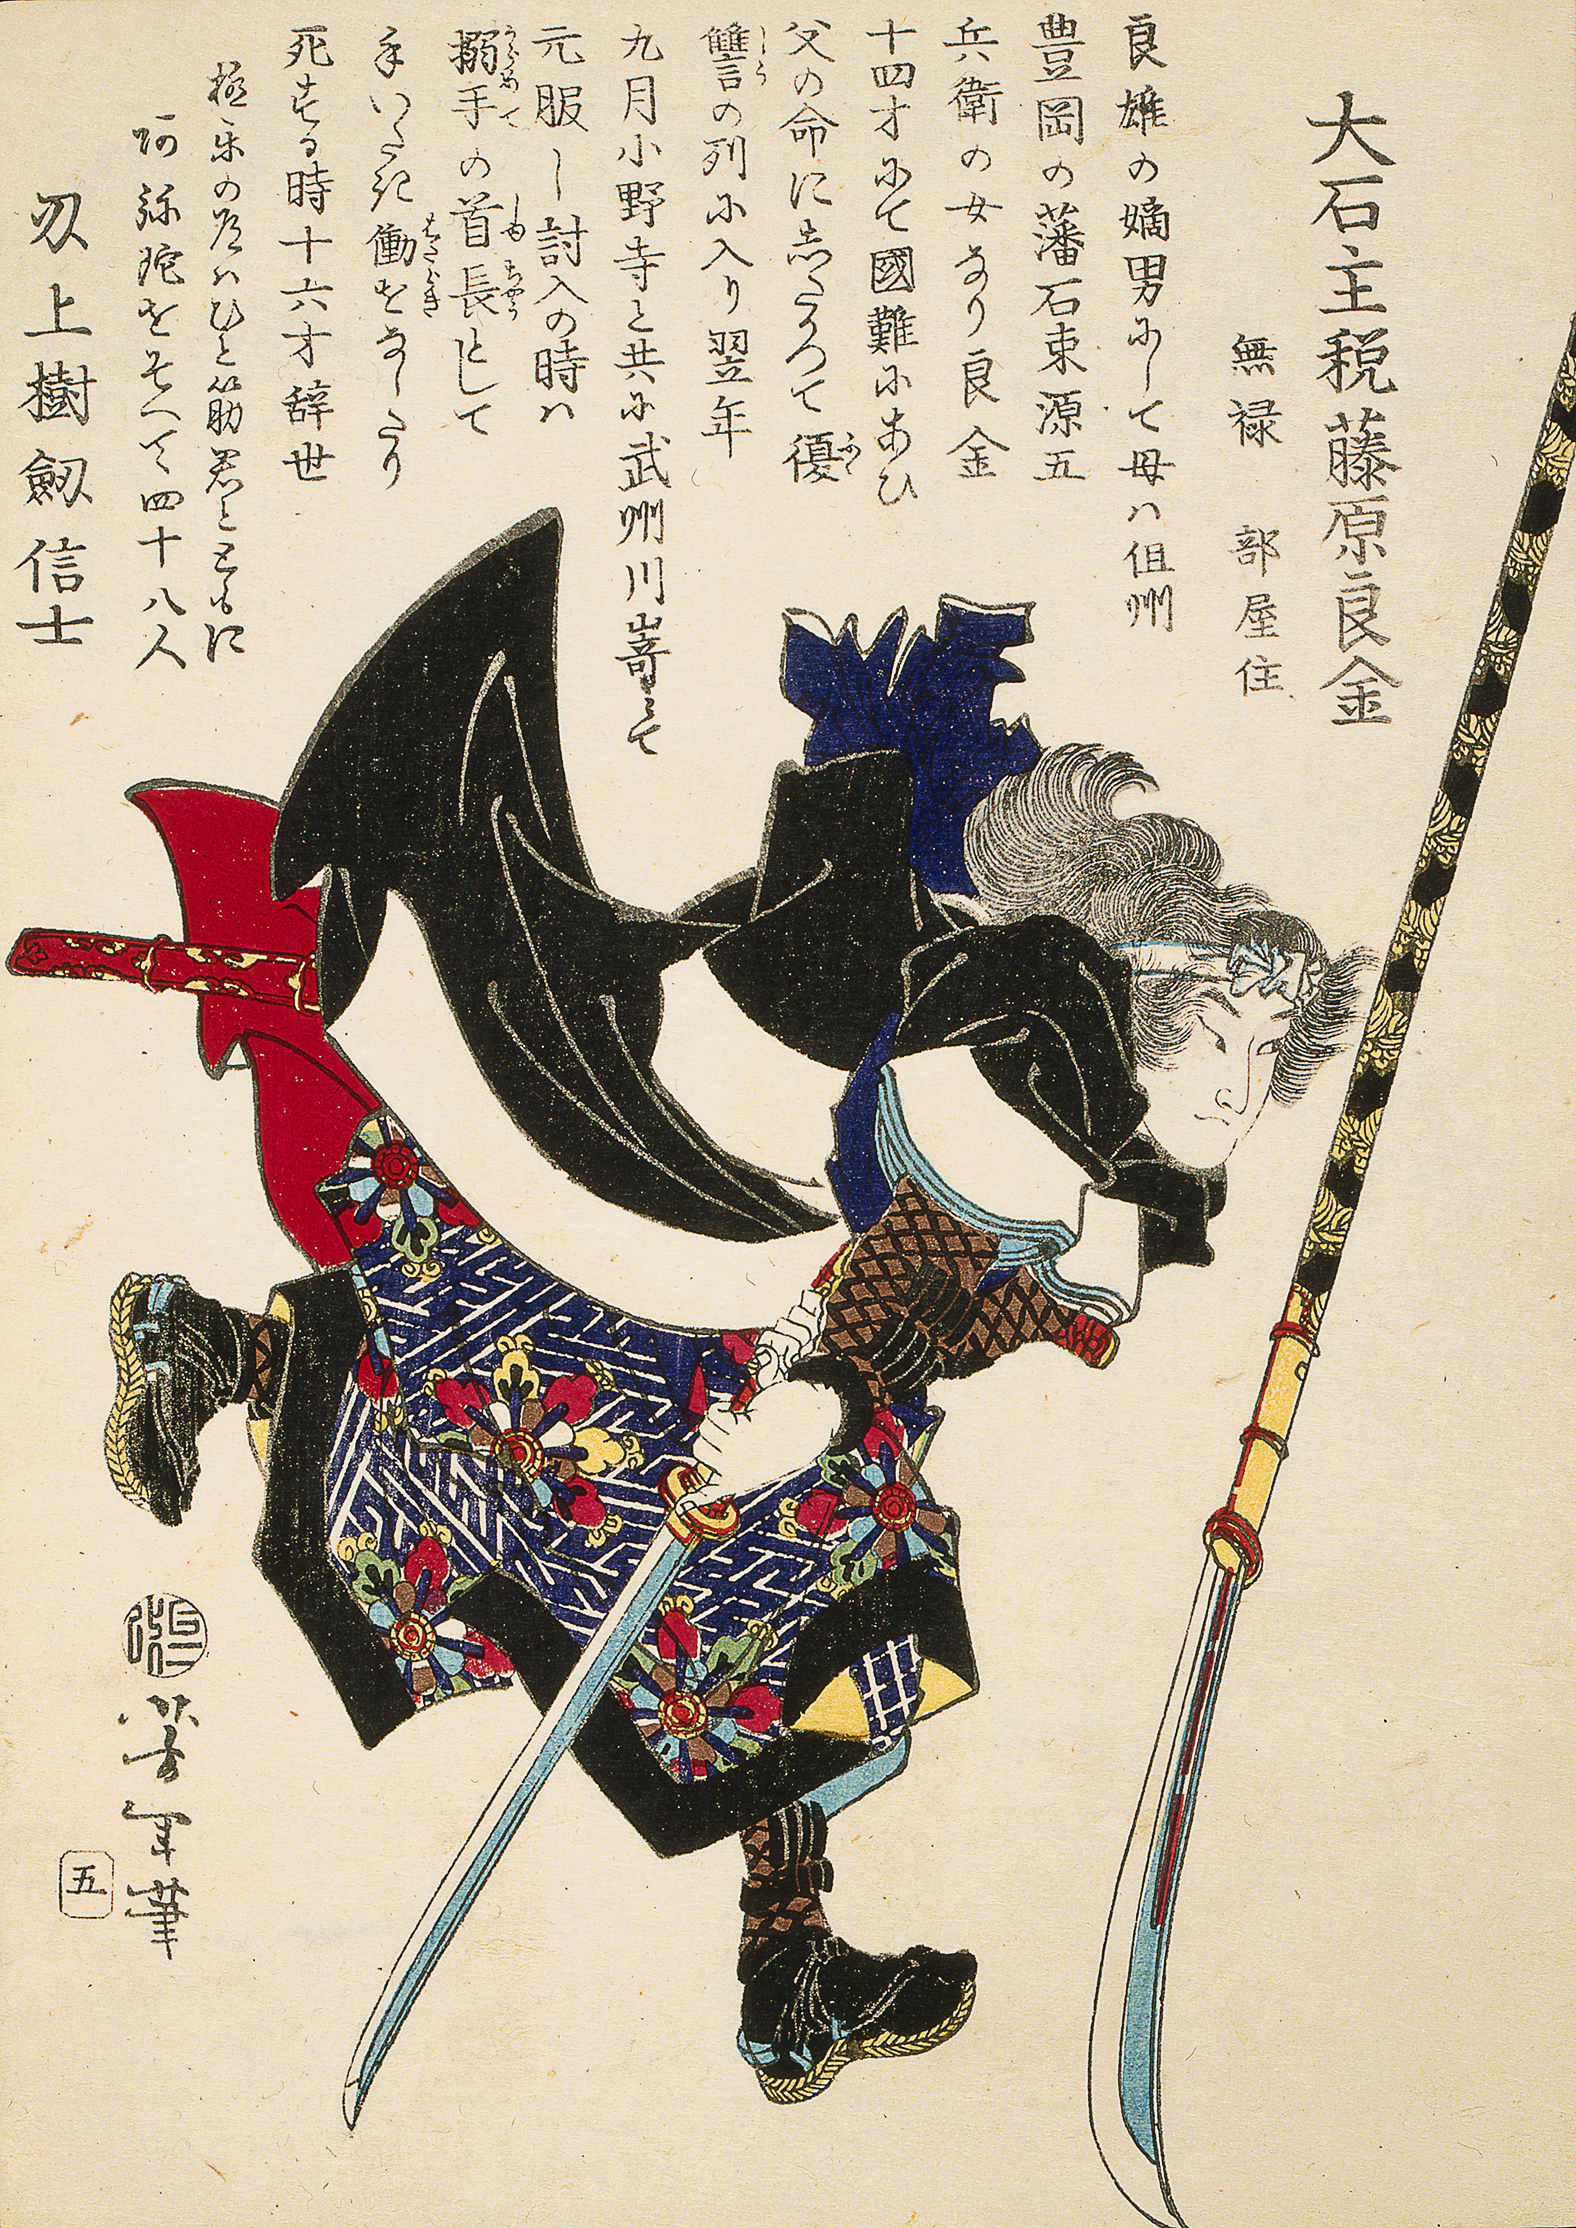 大石主税藤原良金
無禄　部屋住
良雄の嫡男にして母ハ但州
豊岡の藩石束源五
兵衛の女なり良金
十四才にて國難にあひ
父の命にしたかつて復
讐の列に入り翌年
九月小野寺と共に武州川嵜にて
元服し討入の時ハ
搦手の首長として
手いたき働をなしたり
死する時十六才辞世
極楽の道ハひと筋君とともに
阿弥陀をそへて四十八人
刃上樹劔信士
芳年筆
五